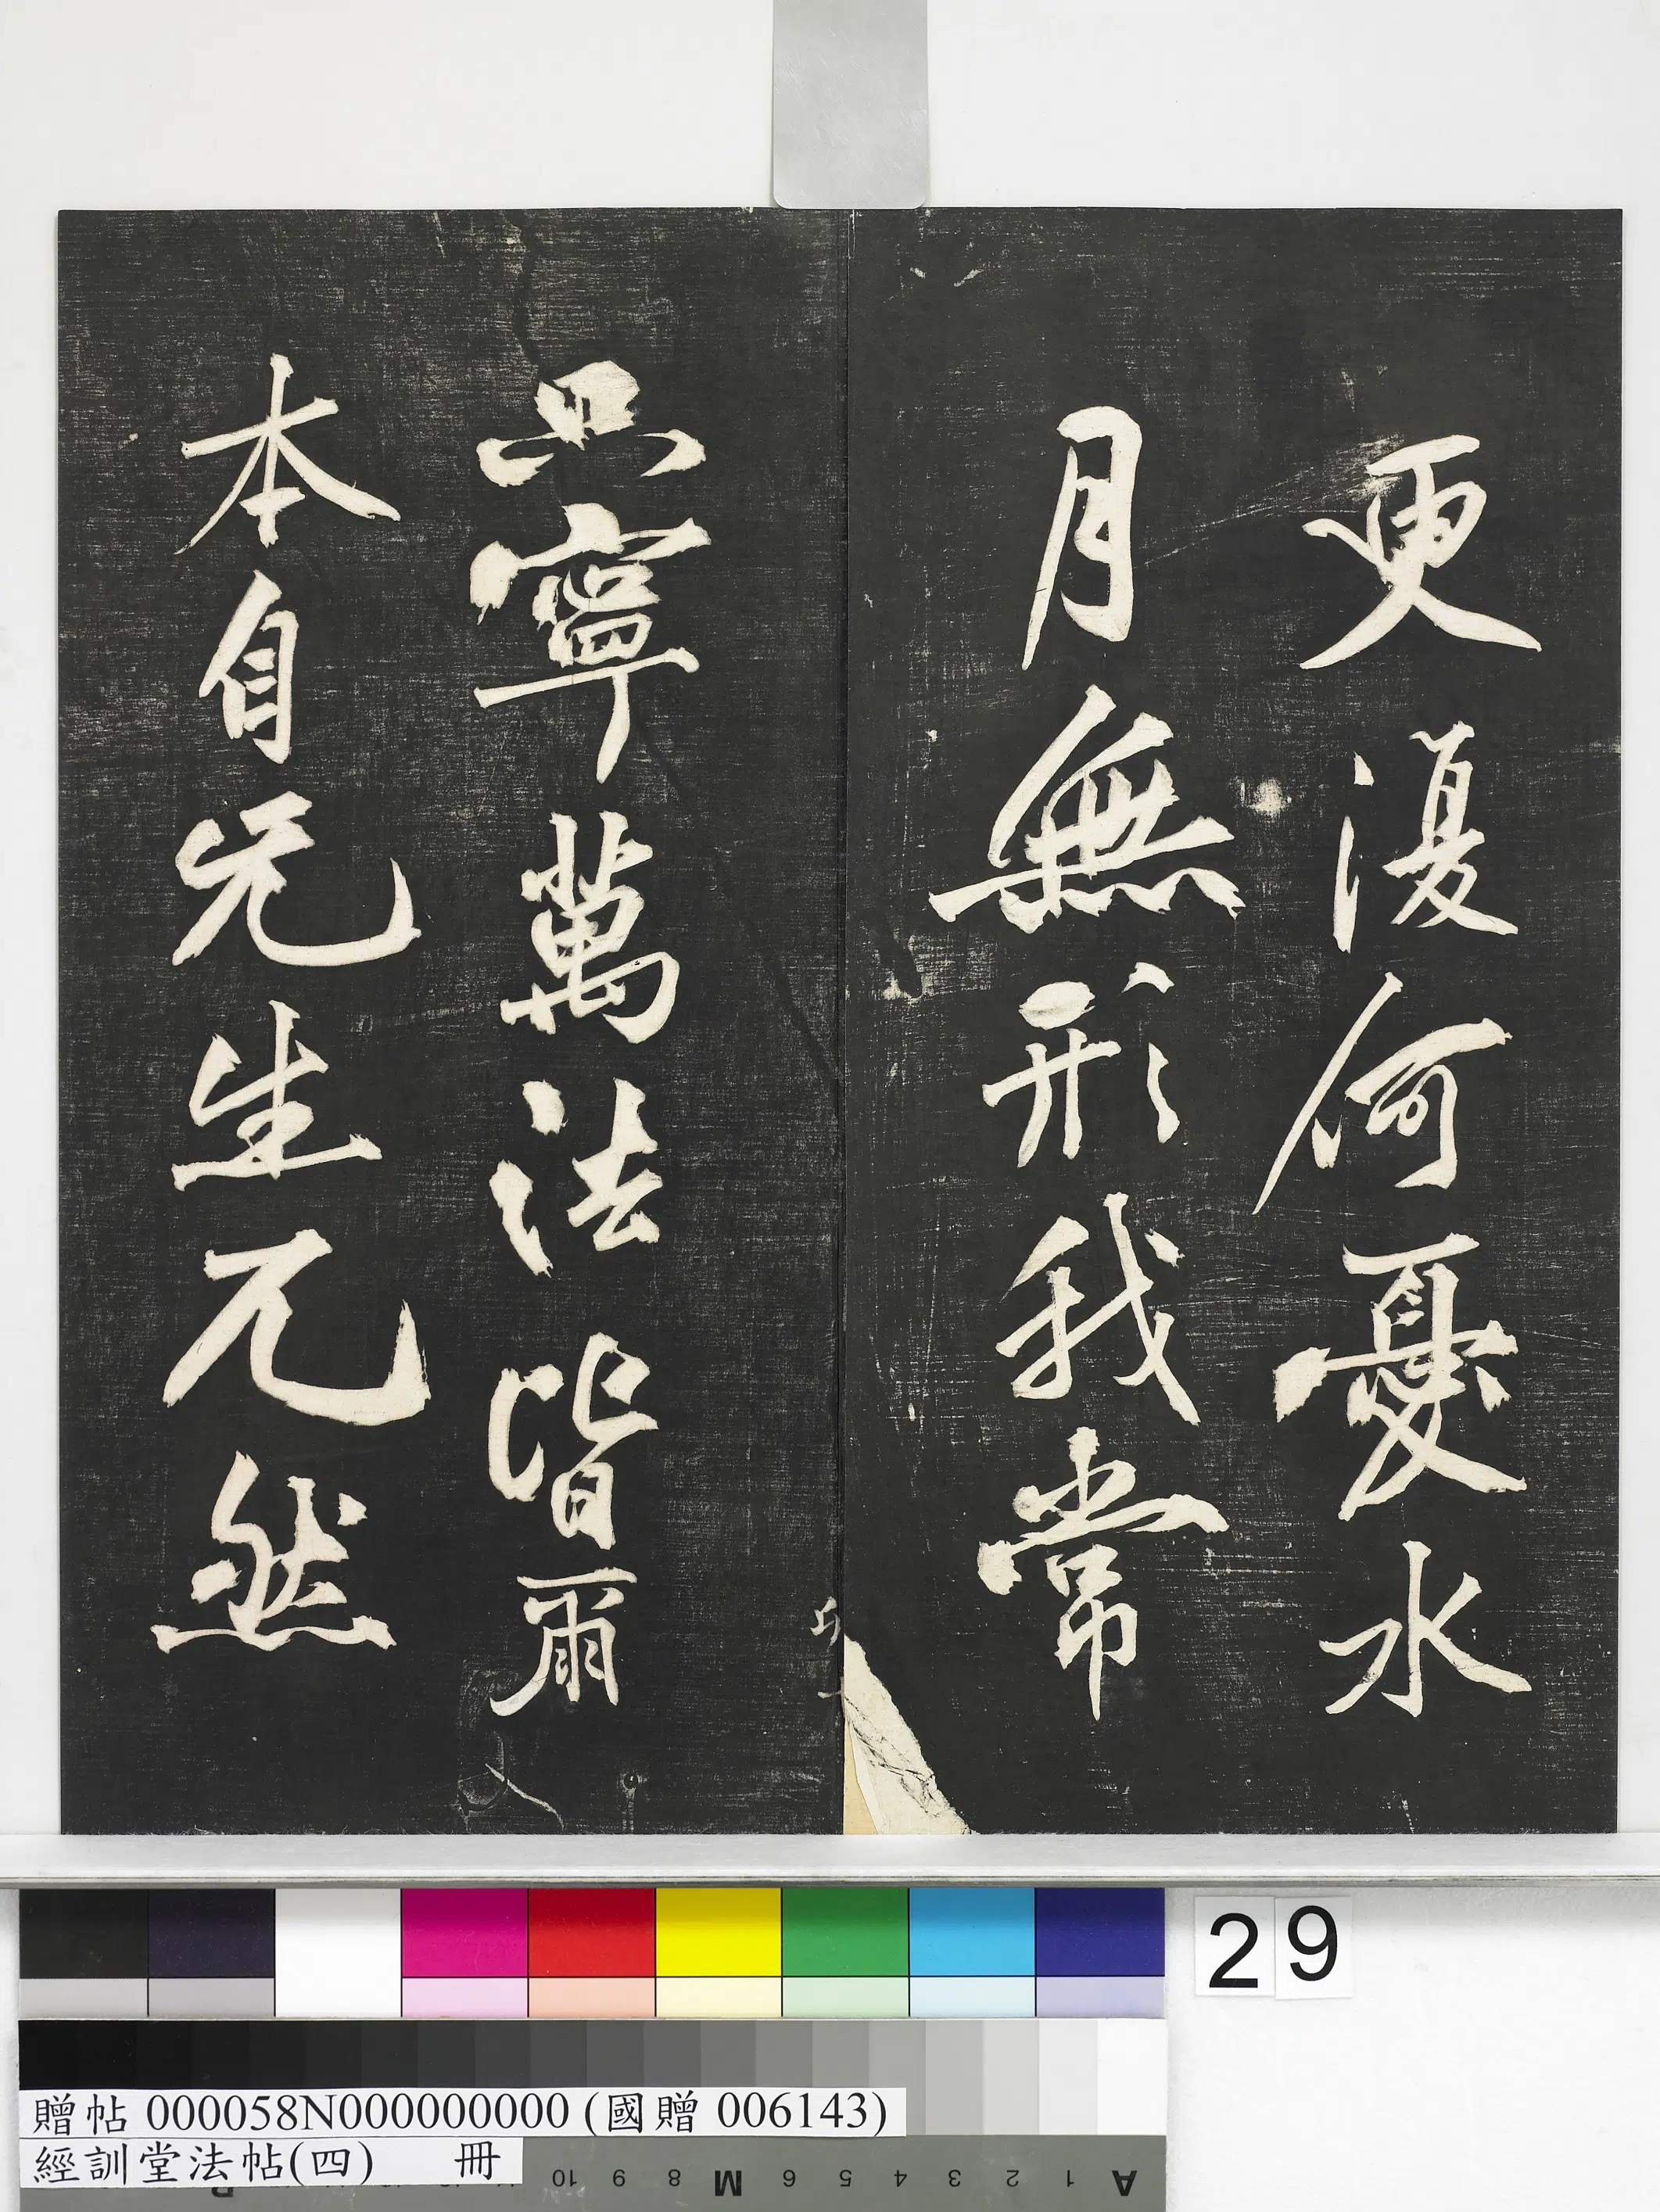 更復何憂水
月無形我常
只寧萬法皆爾
本自无生兀然
29
贈帖 000058N000000000 (國贈 006143)
經訓堂法帖(四) 冊
A 1 2 3 4 5 6 M 8 9 10